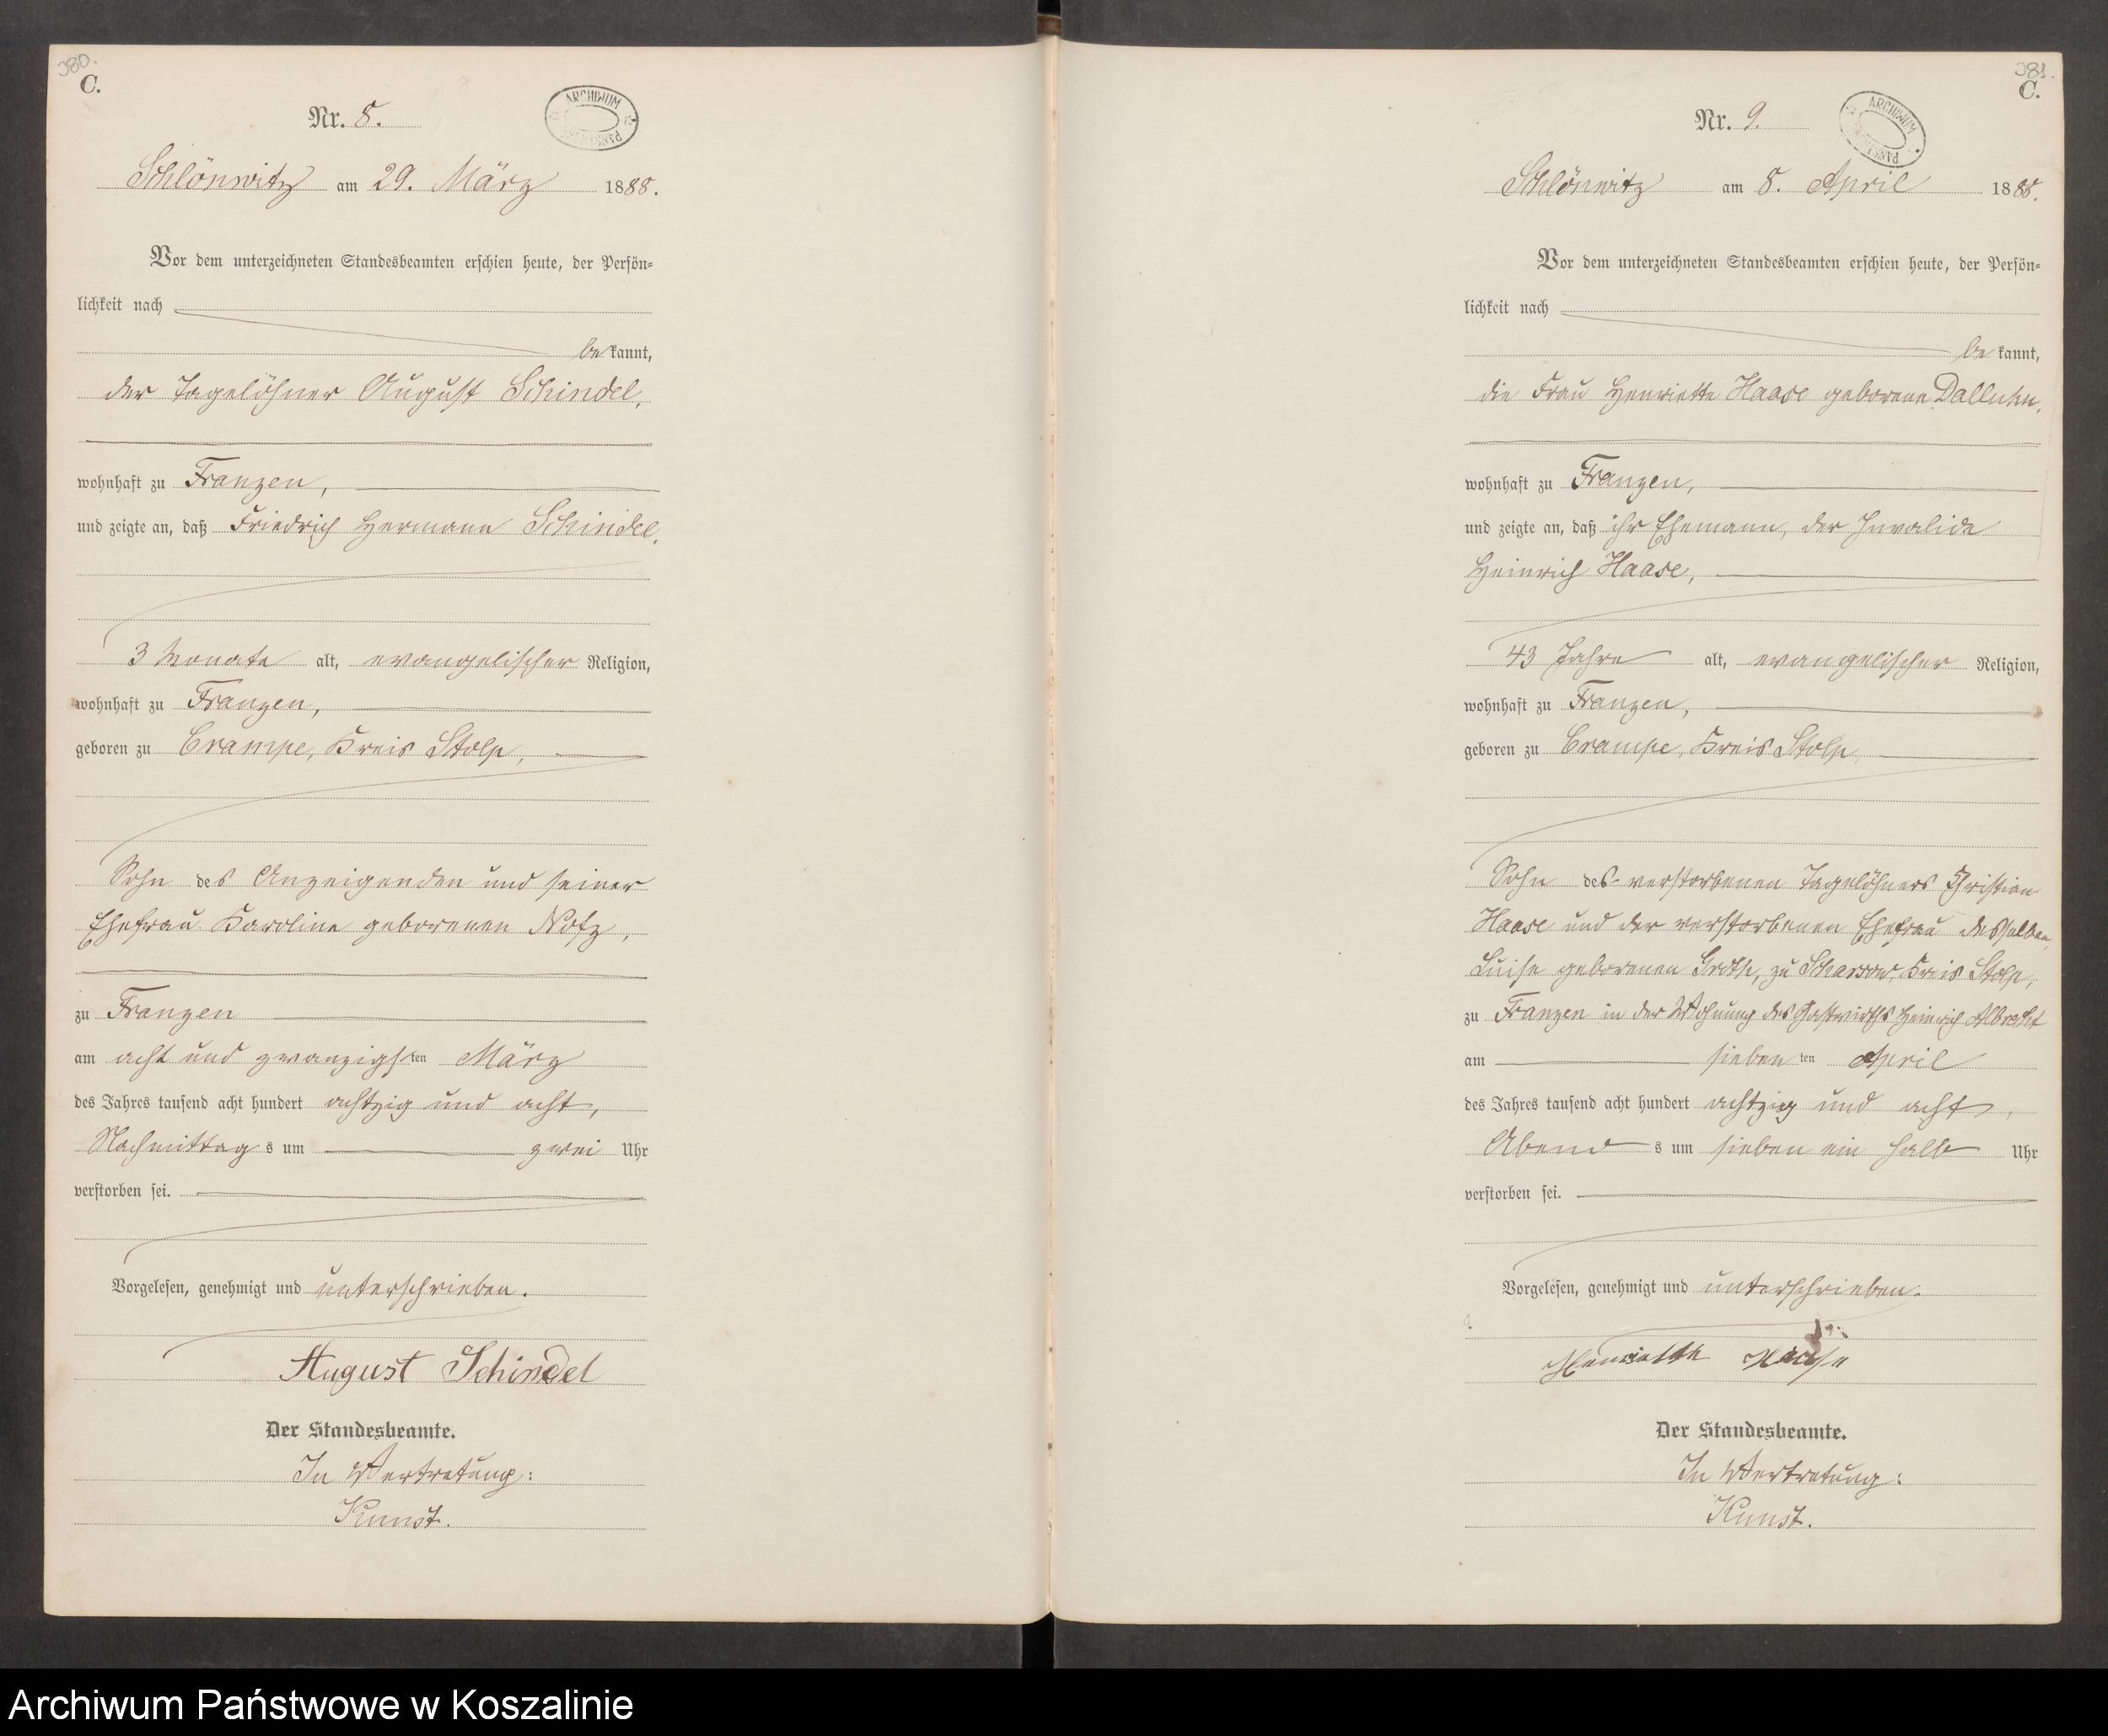 380.
C.
Nr. 8.
ARCHIWUM
Schlönwitz am 29. März 1888.
Vor dem unterzeichneten Standesbeamten erschien heute, der Persön-
lichkeit nach
bekannt,
der Tagelöhner August Schindel,
wohnhaft zu Franzen,
und zeigte an, daß Friedrich Hermann Schindel,
3 Monate alt, evangelischer Religion,
wohnhaft zu Franzen,
geboren zu Crampe, Kreis Stolp,
Sohn des Anzeigenden und seiner
Ehefrau Karoline geborenen Notz,
zu Franzen
am acht und zwanzigsten März
des Jahres tausend acht hundert achtzig und acht,
Nachmittags um zwei Uhr
verstorben sei.
Vorgelesen, genehmigt und unterschrieben.
August Schindel
Der Standesbeamte.
In Vertretung:
Kunst.
381.
C.
Nr. 9.
ARCHIWUM
Schlönwitz am 8. April 1888.
Vor dem unterzeichneten Standesbeamten erschien heute, der Persön-
lichkeit nach
bekannt,
die Frau Henriette Haase geborene Dalluhn,
wohnhaft zu Franzen,
und zeigte an, daß ihr Ehemann, der Invalide
Heinrich Haase,
43 Jahre alt, evangelischer Religion,
wohnhaft zu Franzen,
geboren zu Crampe, Kreis Stolp,
Sohn des verstorbenen Tagelöhners Christian
Haase und der verstorbenen Ehefrau desselben,
Luise geborenen Groth, zu Scharsow, Kreis Stolp,
zu Franzen in der Wohnung des Gastwirths Heinrich Albrecht
am siebenten April
des Jahres tausend acht hundert achtzig und acht,
Abends um sieben ein halb Uhr
verstorben sei.
Vorgelesen, genehmigt und unterschrieben.
Henriette Haase
Der Standesbeamte.
In Vertretung:
Kunst.
Archiwum Państwowe w Koszalinie